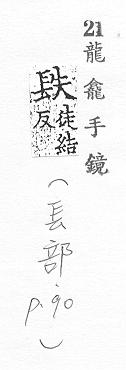 21 龍龕手鏡
镻徒結反
(長部. p.90)